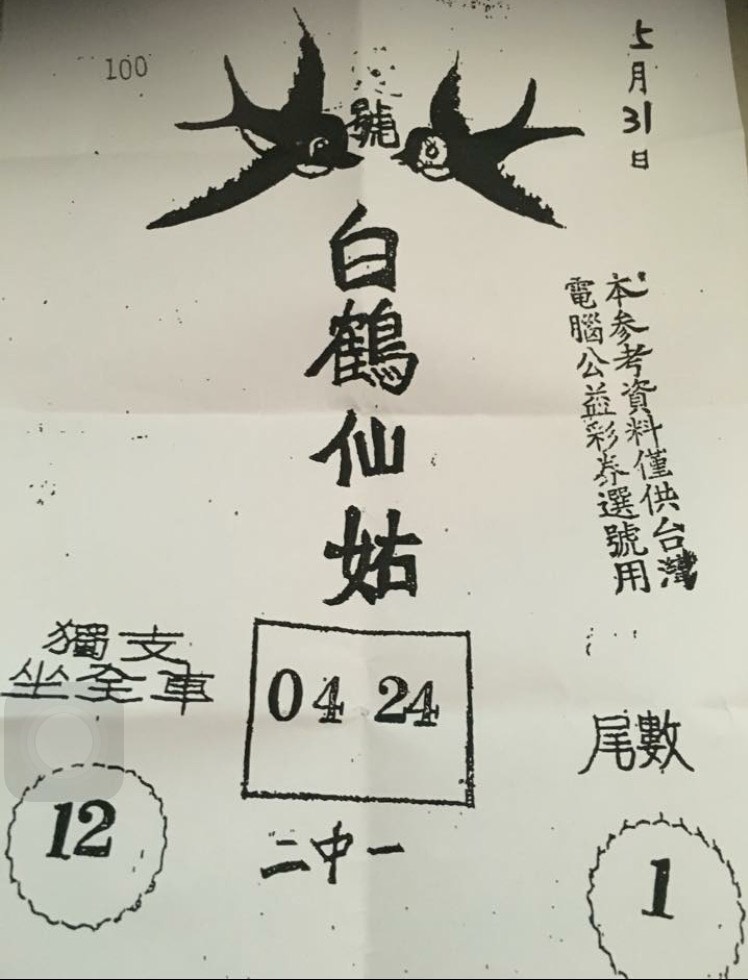 100
號
5月31日
白鶴仙姑
本參考資料僅供台灣
電腦公益彩券選號用
獨支
坐全車
12
04 24
二中一
尾數
1